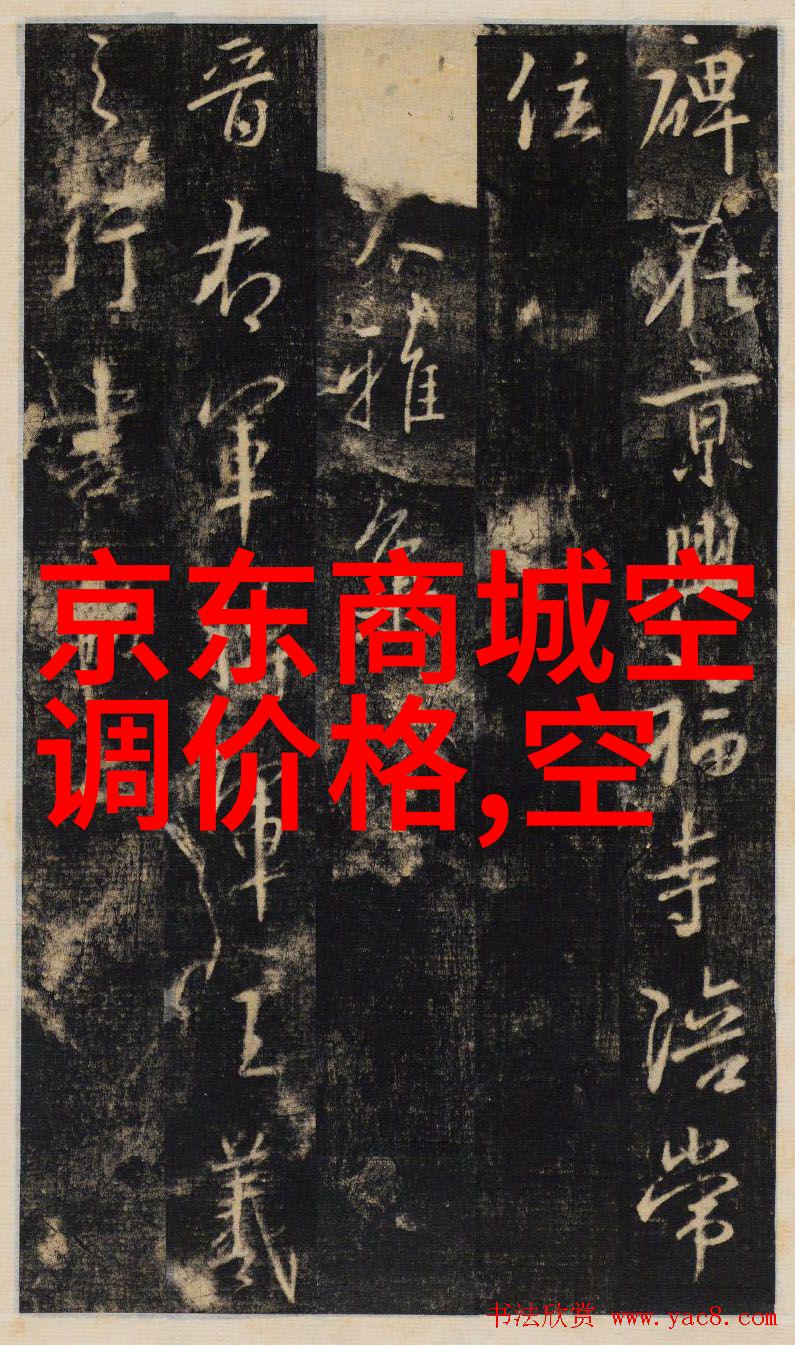 碑在京興福寺陪常
住
大雅集
晋右軍將軍王羲
之行書
京东商城空
调价格,空
书法欣赏 www.yac8.com